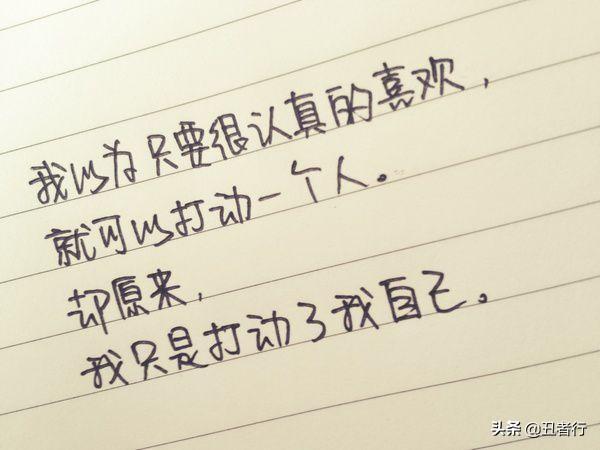 我以为只要很认真的喜欢，
就可以打动一个人。
却原来，
我只是打动了我自己。
头条 @丑者行